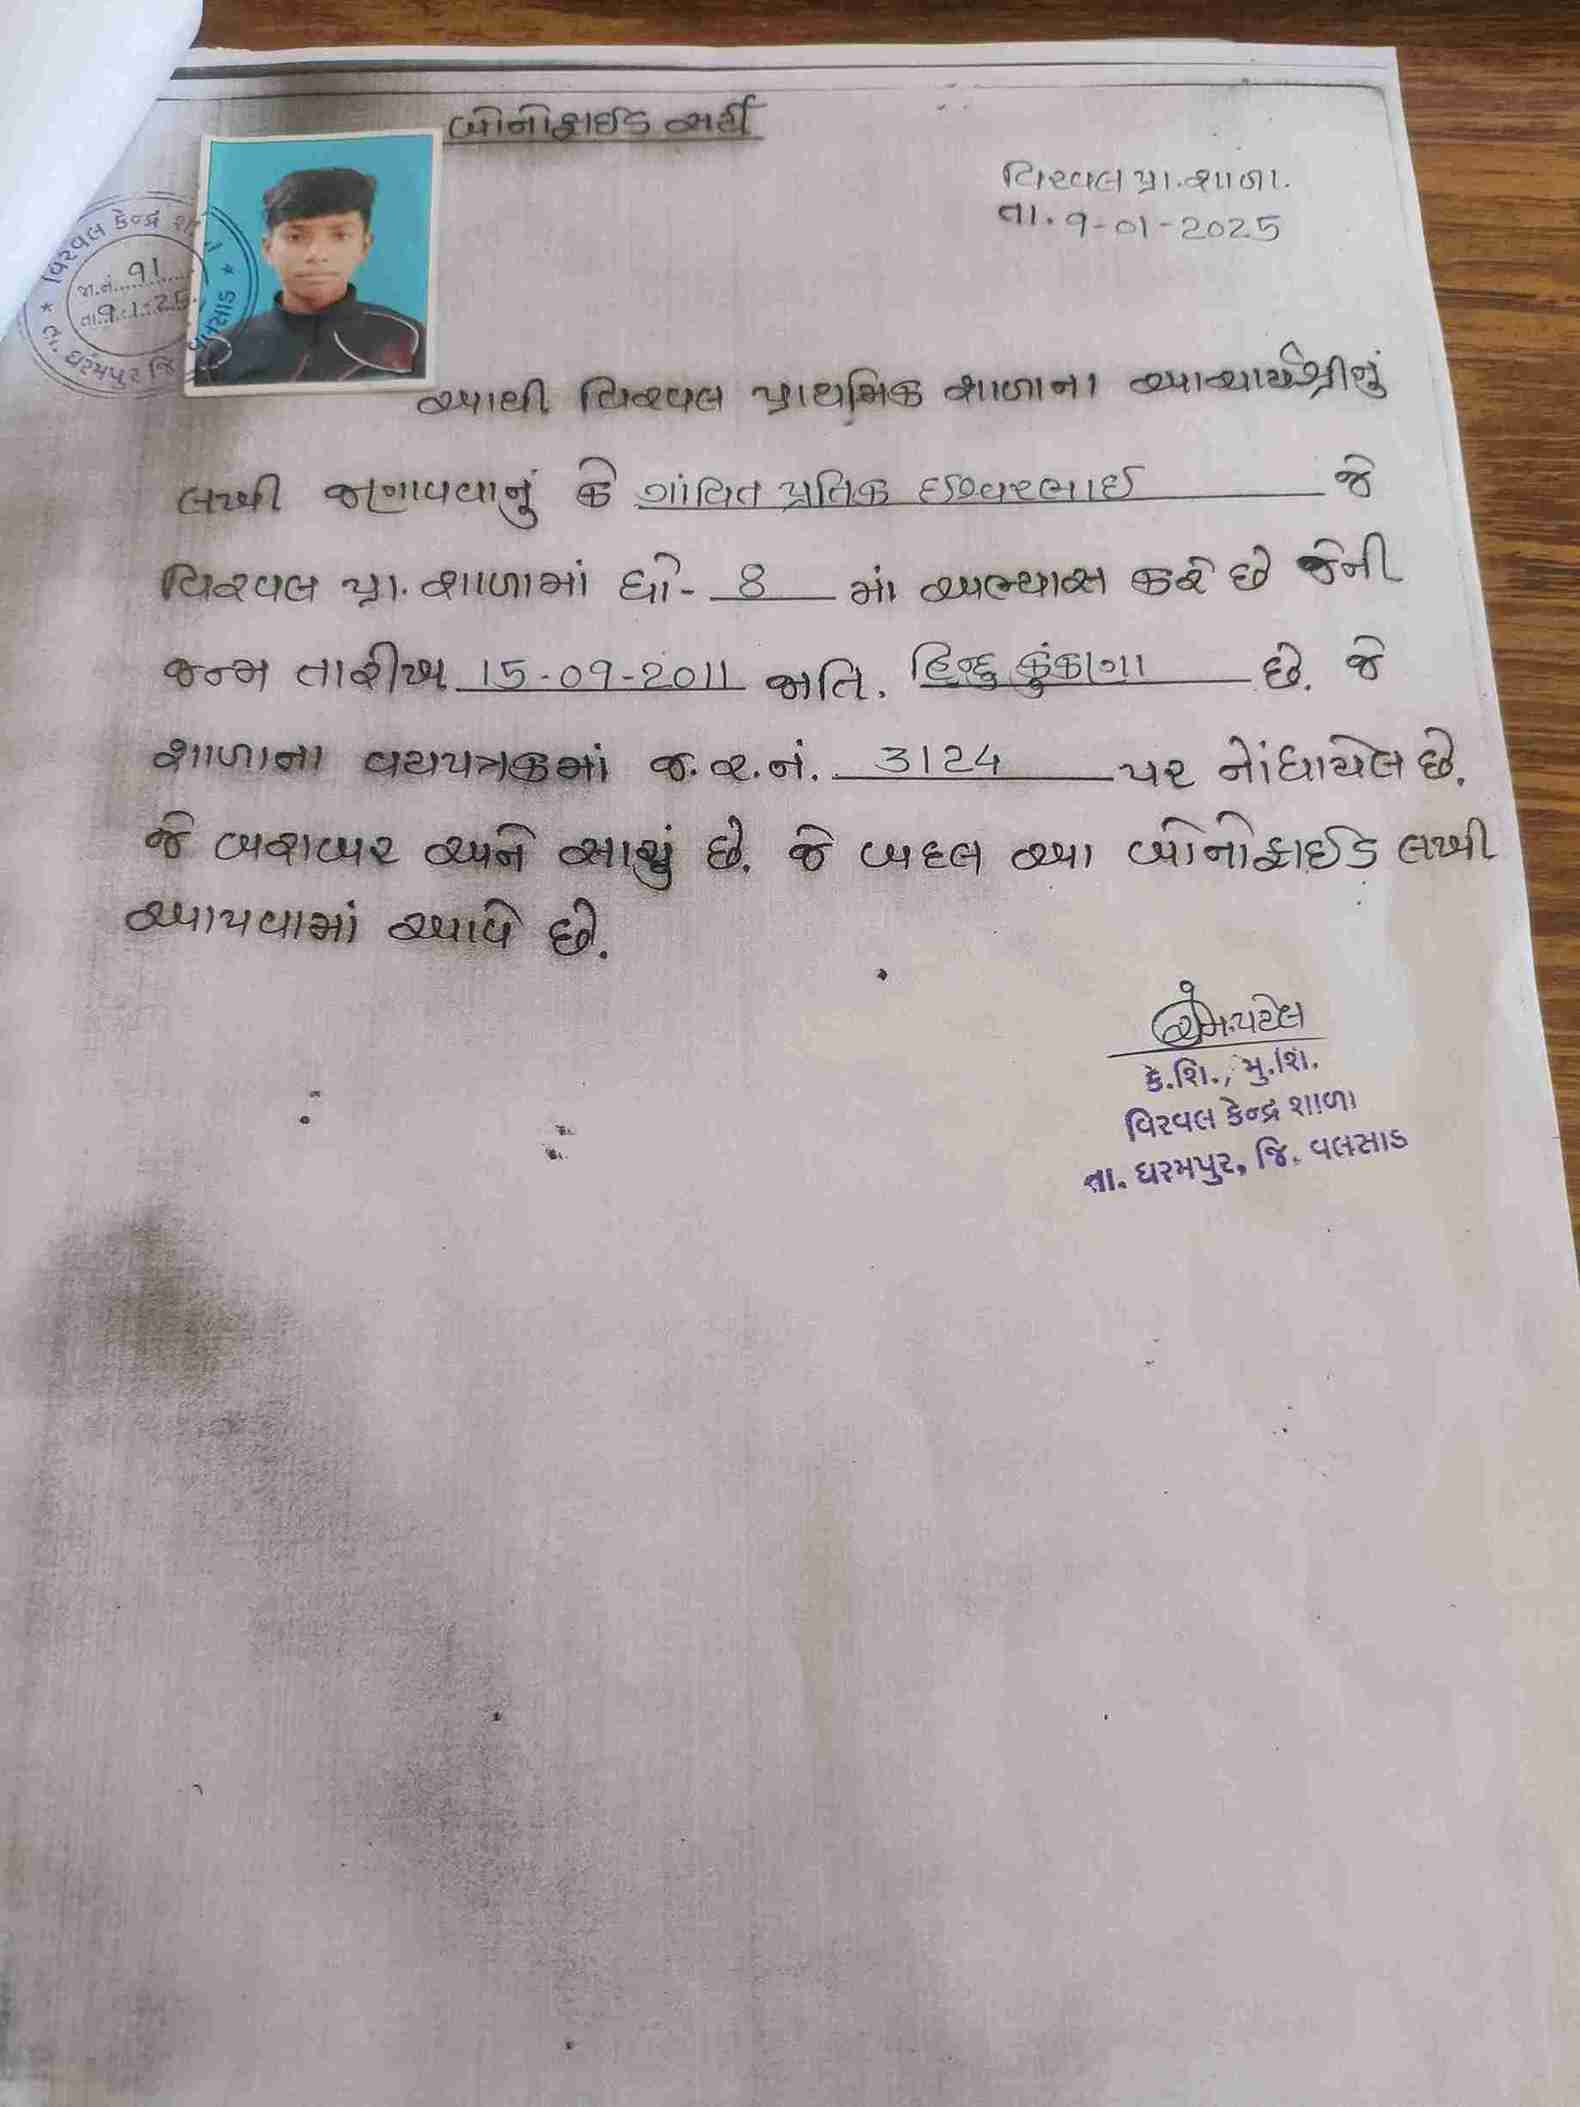 બોનોફાઈડ સર્ટી
વિરવલ પ્રા.શાળા.
તા.૧-01-2025
વિરવલ કેન્દ્ર શા
જા.નં. ૧1
તા.૧.1.25.
તા. ધરમપુર જિ વલસાડ
આથી વિરવલ પ્રાથમિક શાળાના આચાર્યશ્રીનું
લખી જણાવવાનું કે ગાંવિત પ્રતિક ઈશ્વરભાઈ જે
વિરવલ પ્રા.શાળામાં ધો- 8 માં અભ્યાસ કરે છે જેની
જન્મ તારીખ 15-09-2011 જાતિ. હિન્દુ કુંકણા છે. જે
શાળાના વયપત્રકમાં જ.ર.નં. 3124 પર નોંધાયેલ છે.
જે બરાબર અને સાચું છે. જે બદલ આ બોનોફાઈડ લખી
આપવામાં આવે છે.
કે.શિ., મુ.શિ.
વિરવલ કેન્દ્ર શાળા
તા. ધરમપુર, જિ. વલસાડ